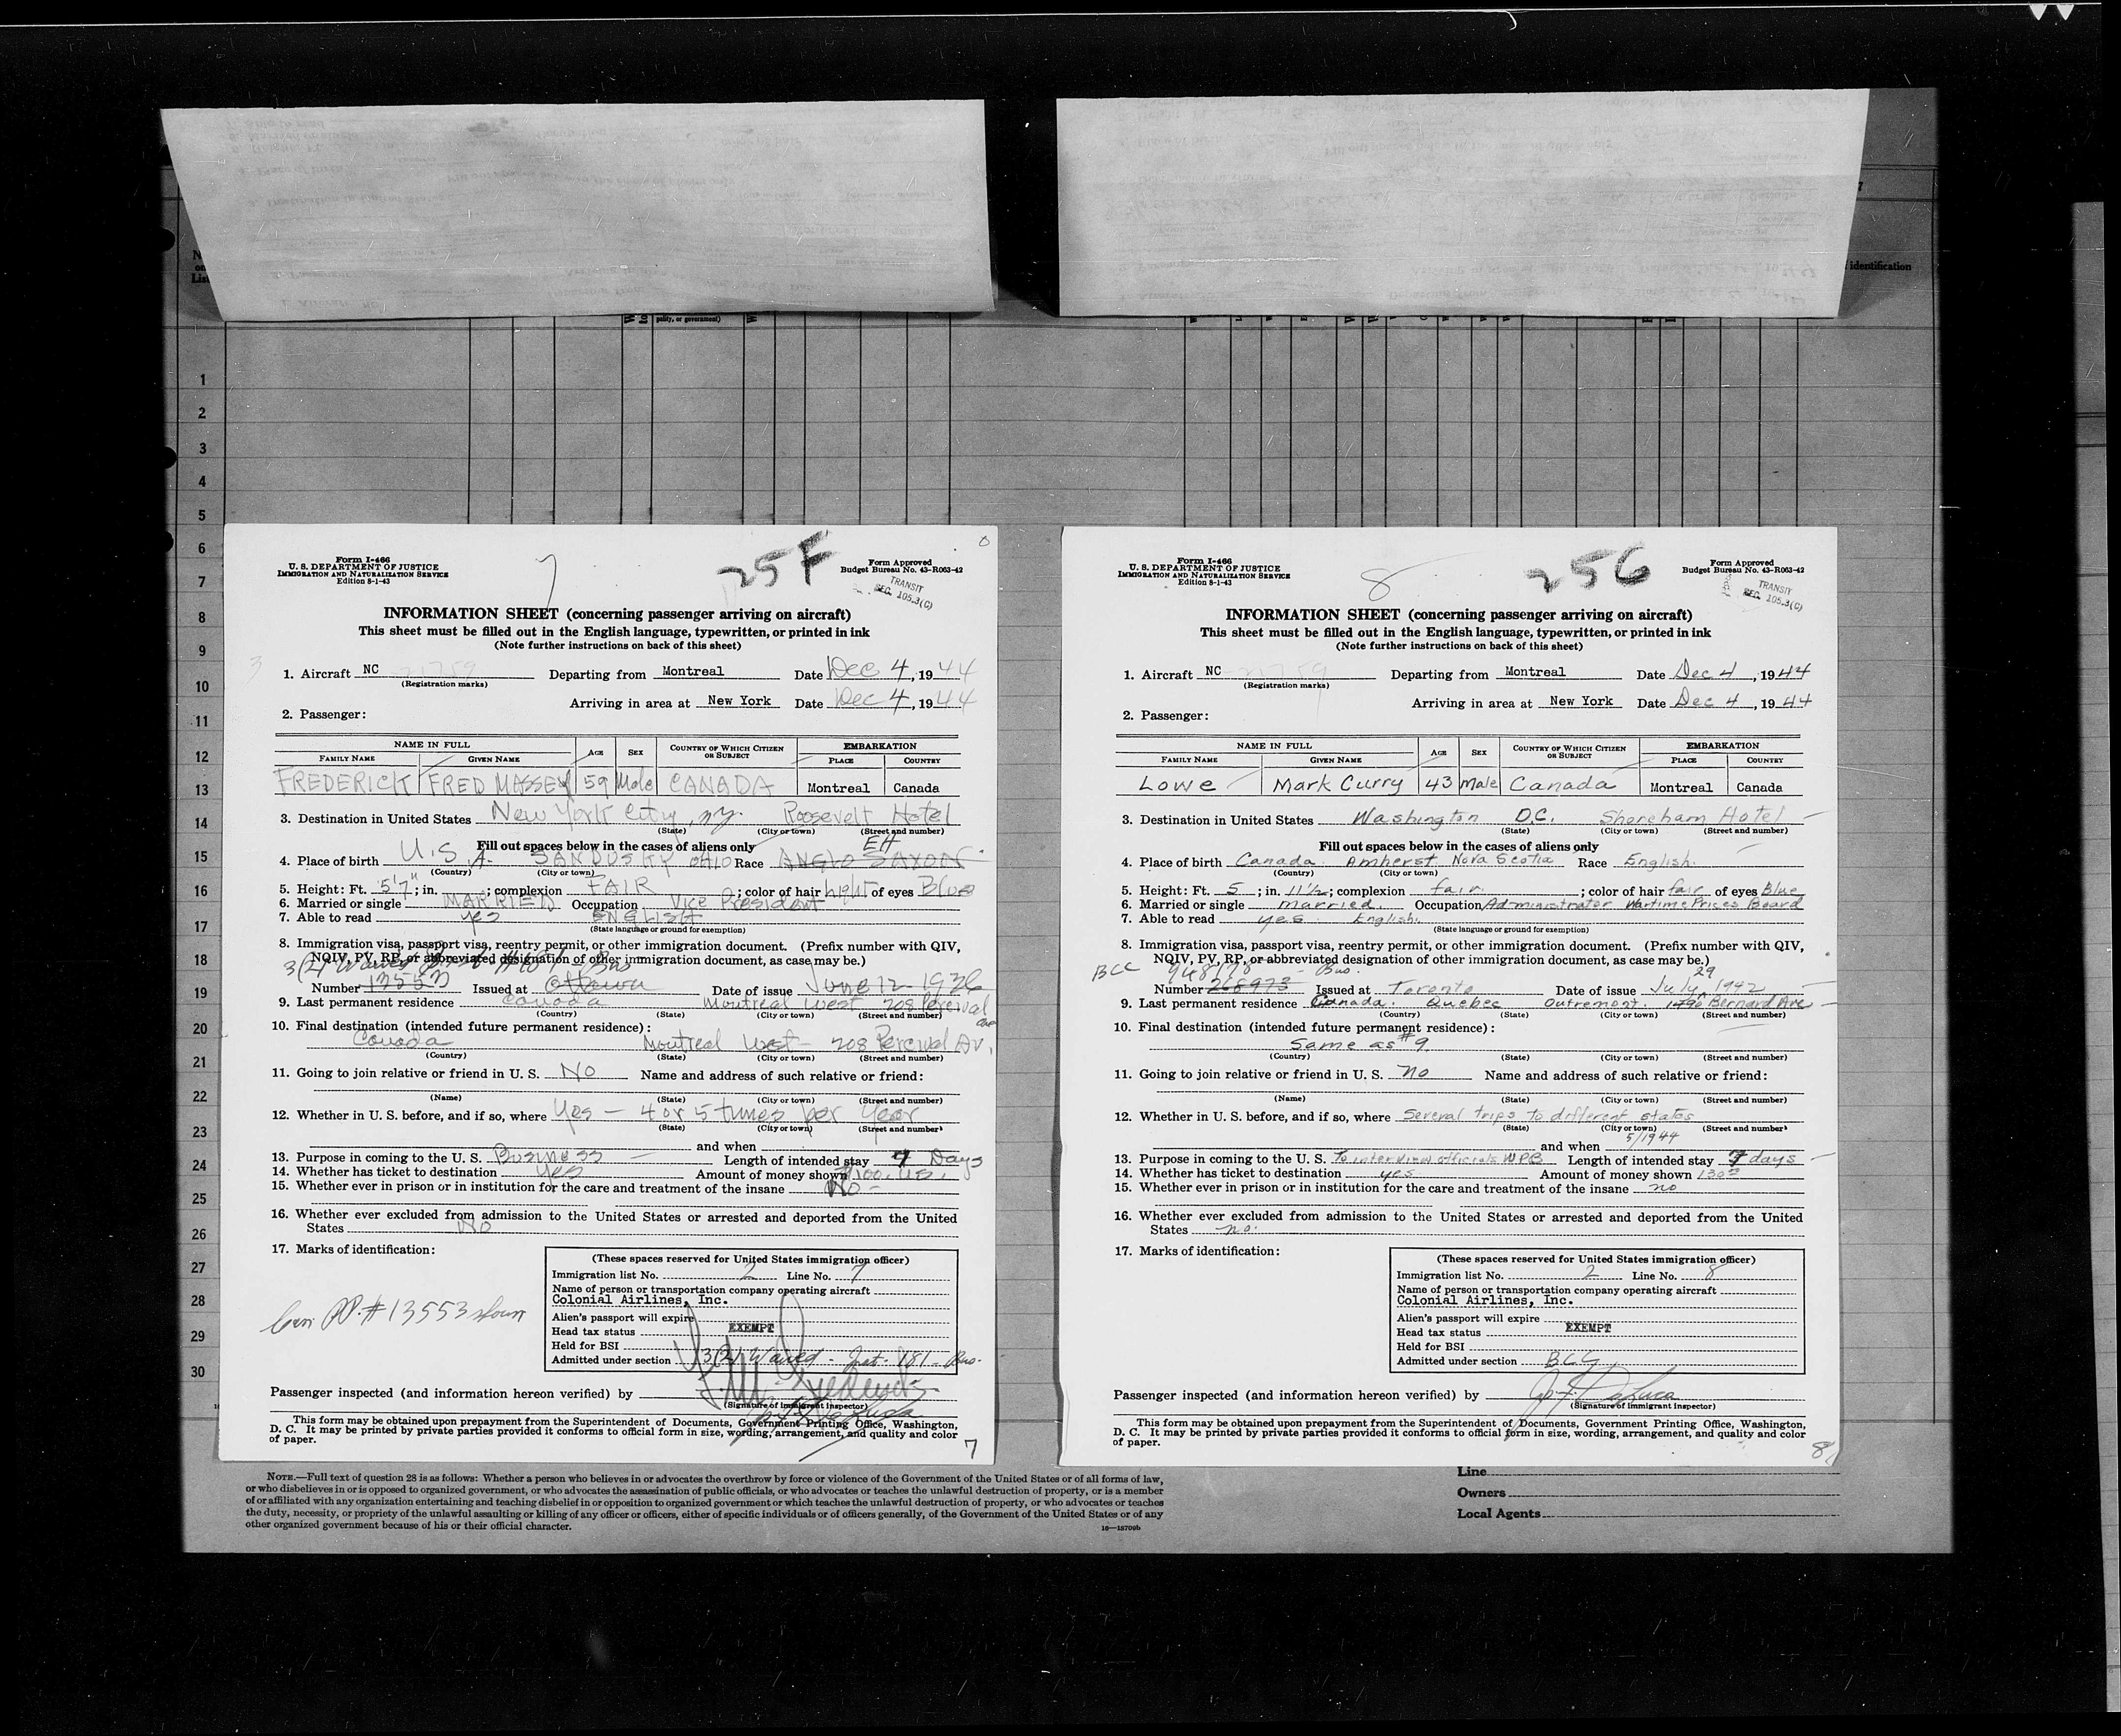 identification
polity, or government)
1
2
3
4
5
6
7
8
9
10
11
12
13
14
15
16
17
18
19
20
21
22
23
24
25
26
27
28
29
30
Form I-466
U. S. DEPARTMENT OF JUSTICE
IMMIGRATION AND NATURALIZATION SERVICE
Edition 8-1-43
7
25F
Form Approved
Budget Bureau No. 43-R063-42
TRANSIT
SEC. 105.3(C)
INFORMATION SHEET (concerning passenger arriving on aircraft)
This sheet must be filled out in the English language, typewritten, or printed in ink
(Note further instructions on back of this sheet)
1. Aircraft NC 21759 Departing from Montreal Date Dec 4, 1944
(Registration marks)
Arriving in area at New York Date Dec 4, 1944
2. Passenger:
NAME IN FULL AGE SEX COUNTRY OF WHICH CITIZEN OR SUBJECT EMBARKATION
FAMILY NAME GIVEN NAME PLACE COUNTRY
FREDERICK FRED MASSEY 59 Male CANADA Montreal Canada
3. Destination in United States New York City, N.Y. Roosevelt Hotel
(State) (City or town) (Street and number)
Fill out spaces below in the cases of aliens only EH
4. Place of birth U.S.A. SANDUSKY OHIO Race ANGLO SAXON
(Country) (City or town)
5. Height: Ft. 5'7"; in. ; complexion FAIR ; color of hair light of eyes Blue
6. Married or single MARRIED Occupation Vice President
7. Able to read yes ENGLISH
(State language or ground for exemption)
8. Immigration visa, passport visa, reentry permit, or other immigration document. (Prefix number with QIV,
NQIV, PV, RP, or abbreviated designation of other immigration document, as case may be.)
Number 13553 Issued at Ottawa Date of issue June 12 1936
9. Last permanent residence Canada Montreal West 208 Percival Ave
(Country) (State) (City or town) (Street and number)
10. Final destination (intended future permanent residence):
Canada Montreal West - 208 Percival Av.
(Country) (State) (City or town) (Street and number)
11. Going to join relative or friend in U. S. No Name and address of such relative or friend:
(Name) (State) (City or town) (Street and number)
12. Whether in U. S. before, and if so, where Yes - 4 or 5 times per year
(State) (City or town) (Street and number)
and when
13. Purpose in coming to the U. S. Business Length of intended stay 7 Days
14. Whether has ticket to destination yes Amount of money shown $100. U.S.
15. Whether ever in prison or in institution for the care and treatment of the insane No -
16. Whether ever excluded from admission to the United States or arrested and deported from the United
States No
17. Marks of identification:
Can PP. # 13553 shown
(These spaces reserved for United States immigration officer)
Immigration list No. 2 Line No. 7
Name of person or transportation company operating aircraft
Colonial Airlines, Inc.
Alien's passport will expire
Head tax status EXEMPT
Held for BSI
Admitted under section 3(2) Waived - Inst. 181 - Bus.
Passenger inspected (and information hereon verified) by
(Signature of Immigrant Inspector)
This form may be obtained upon prepayment from the Superintendent of Documents, Government Printing Office, Washington,
D. C. It may be printed by private parties provided it conforms to official form in size, wording, arrangement, and quality and color
of paper.
7
Form I-466
U. S. DEPARTMENT OF JUSTICE
IMMIGRATION AND NATURALIZATION SERVICE
Edition 8-1-43
8
25G
Form Approved
Budget Bureau No. 43-R063-42
TRANSIT
SEC. 105.3(C)
INFORMATION SHEET (concerning passenger arriving on aircraft)
This sheet must be filled out in the English language, typewritten, or printed in ink
(Note further instructions on back of this sheet)
1. Aircraft NC 21759 Departing from Montreal Date Dec 4, 1944
(Registration marks)
Arriving in area at New York Date Dec 4, 1944
2. Passenger:
NAME IN FULL AGE SEX COUNTRY OF WHICH CITIZEN OR SUBJECT EMBARKATION
FAMILY NAME GIVEN NAME PLACE COUNTRY
Lowe Mark Curry 43 Male Canada Montreal Canada
3. Destination in United States Washington D.C. Shoreham Hotel
(State) (City or town) (Street and number)
Fill out spaces below in the cases of aliens only
4. Place of birth Canada Amherst Nova Scotia Race English.
(Country) (City or town)
5. Height: Ft. 5; in. 11½; complexion fair ; color of hair fair of eyes Blue
6. Married or single married. Occupation Administrator Wartime Prices Board
7. Able to read yes English.
(State language or ground for exemption)
8. Immigration visa, passport visa, reentry permit, or other immigration document. (Prefix number with QIV,
NQIV, PV, RP, or abbreviated designation of other immigration document, as case may be.)
BCC 948178 - Bus.
Number 268973 Issued at Toronto Date of issue July 29 1942
9. Last permanent residence Canada. Quebec Outremont. 1796 Bernard Ave
(Country) (State) (City or town) (Street and number)
10. Final destination (intended future permanent residence):
Same as #9.
(Country) (State) (City or town) (Street and number)
11. Going to join relative or friend in U. S. no Name and address of such relative or friend:
(Name) (State) (City or town) (Street and number)
12. Whether in U. S. before, and if so, where Several trips to different states
(State) (City or town) (Street and number)
and when 5/1944
13. Purpose in coming to the U. S. To interview officials WPB Length of intended stay 7 days
14. Whether has ticket to destination yes Amount of money shown 130
15. Whether ever in prison or in institution for the care and treatment of the insane no
16. Whether ever excluded from admission to the United States or arrested and deported from the United
States no.
17. Marks of identification:
(These spaces reserved for United States immigration officer)
Immigration list No. 2 Line No. 8
Name of person or transportation company operating aircraft
Colonial Airlines, Inc.
Alien's passport will expire
Head tax status EXEMPT
Held for BSI
Admitted under section BCC
Passenger inspected (and information hereon verified) by
(Signature of Immigrant Inspector)
This form may be obtained upon prepayment from the Superintendent of Documents, Government Printing Office, Washington,
D. C. It may be printed by private parties provided it conforms to official form in size, wording, arrangement, and quality and color
of paper.
8
NOTE.—Full text of question 28 is as follows: Whether a person who believes in or advocates the overthrow by force or violence of the Government of the United States or of all forms of law,
or who disbelieves in or is opposed to organized government, or who advocates the assassination of public officials, or who advocates or teaches the unlawful destruction of property, or is a member
of or affiliated with any organization entertaining and teaching disbelief in or opposition to organized government or which teaches the unlawful destruction of property, or who advocates or teaches
the duty, necessity, or propriety of the unlawful assaulting or killing of any officer or officers, either of specific individuals or of officers generally, of the Government of the United States or of any
other organized government because of his or their official character.
16—18709b
Line
Owners
Local Agents